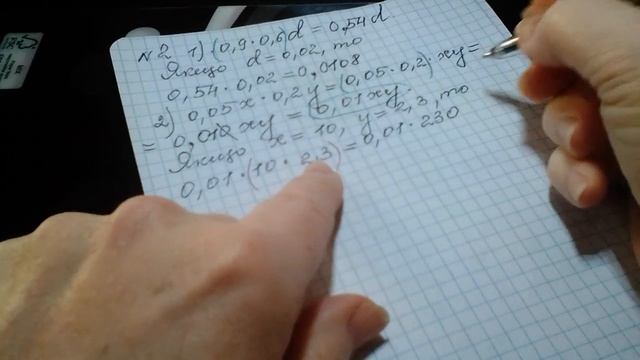 №2 1) (0,9 · 0,6)d = 0,54d.
Якщо d = 0,02, то
0,54 · 0,02 = 0,0108
2) 0,05x · 0,2y = (0,05 · 0,2) · xy =
= 0,010 xy = 0,01xy.
Якщо x = 10, y = 2,3, то
0,01 · (10 · 2,3) = 0,01 · 230